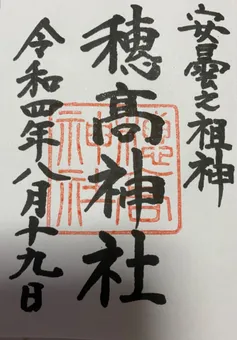 安曇之祖神
穂高神社
令和四年八月十九日
穂高神社